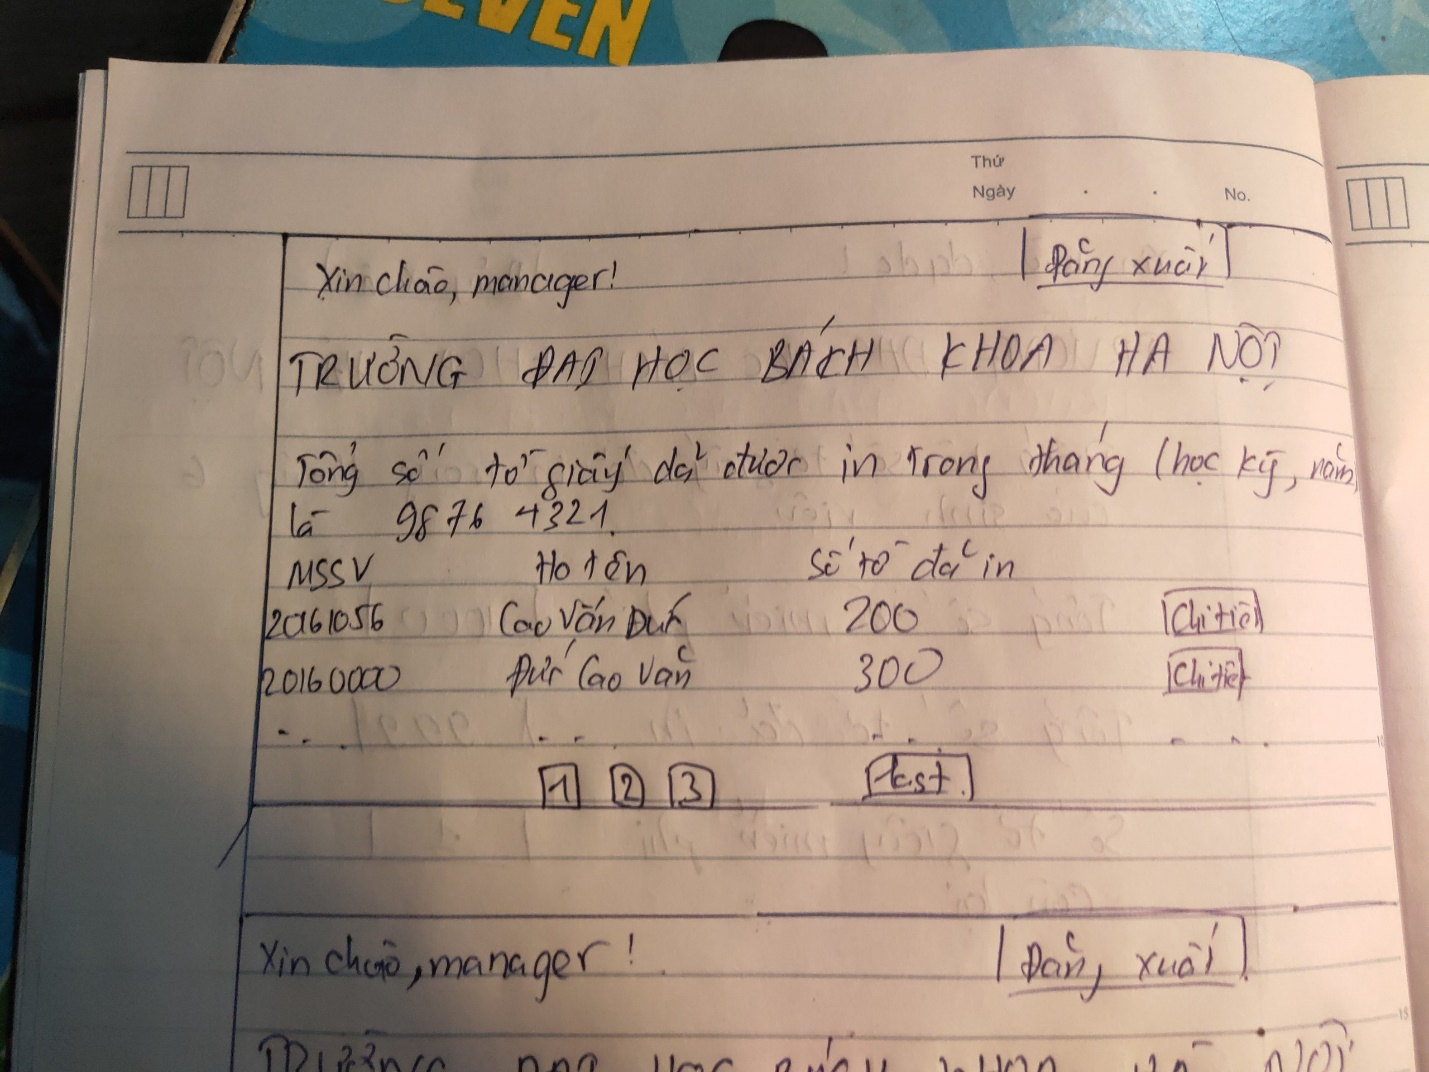 SEVEN
Thứ
Ngày . . No.
Xin chào, manager! Đăng xuất
TRƯỜNG ĐẠI HỌC BÁCH KHOA HA NỘI
Tổng số tờ giấy đã được in trong tháng (học kỳ, năm)
là 9876 4321.
MSSV Ho tên Số tờ đã in
20161056 Cao Văn Đức 200 Chi tiết
20160000 Đức Cao Văn 300 Chi tiết
... ... ... ...
1 2 3 last.
Xin chào, manager! Đăng xuất
TRƯỜNG ĐẠI HỌC BÁCH KHOA HÀ NỘI